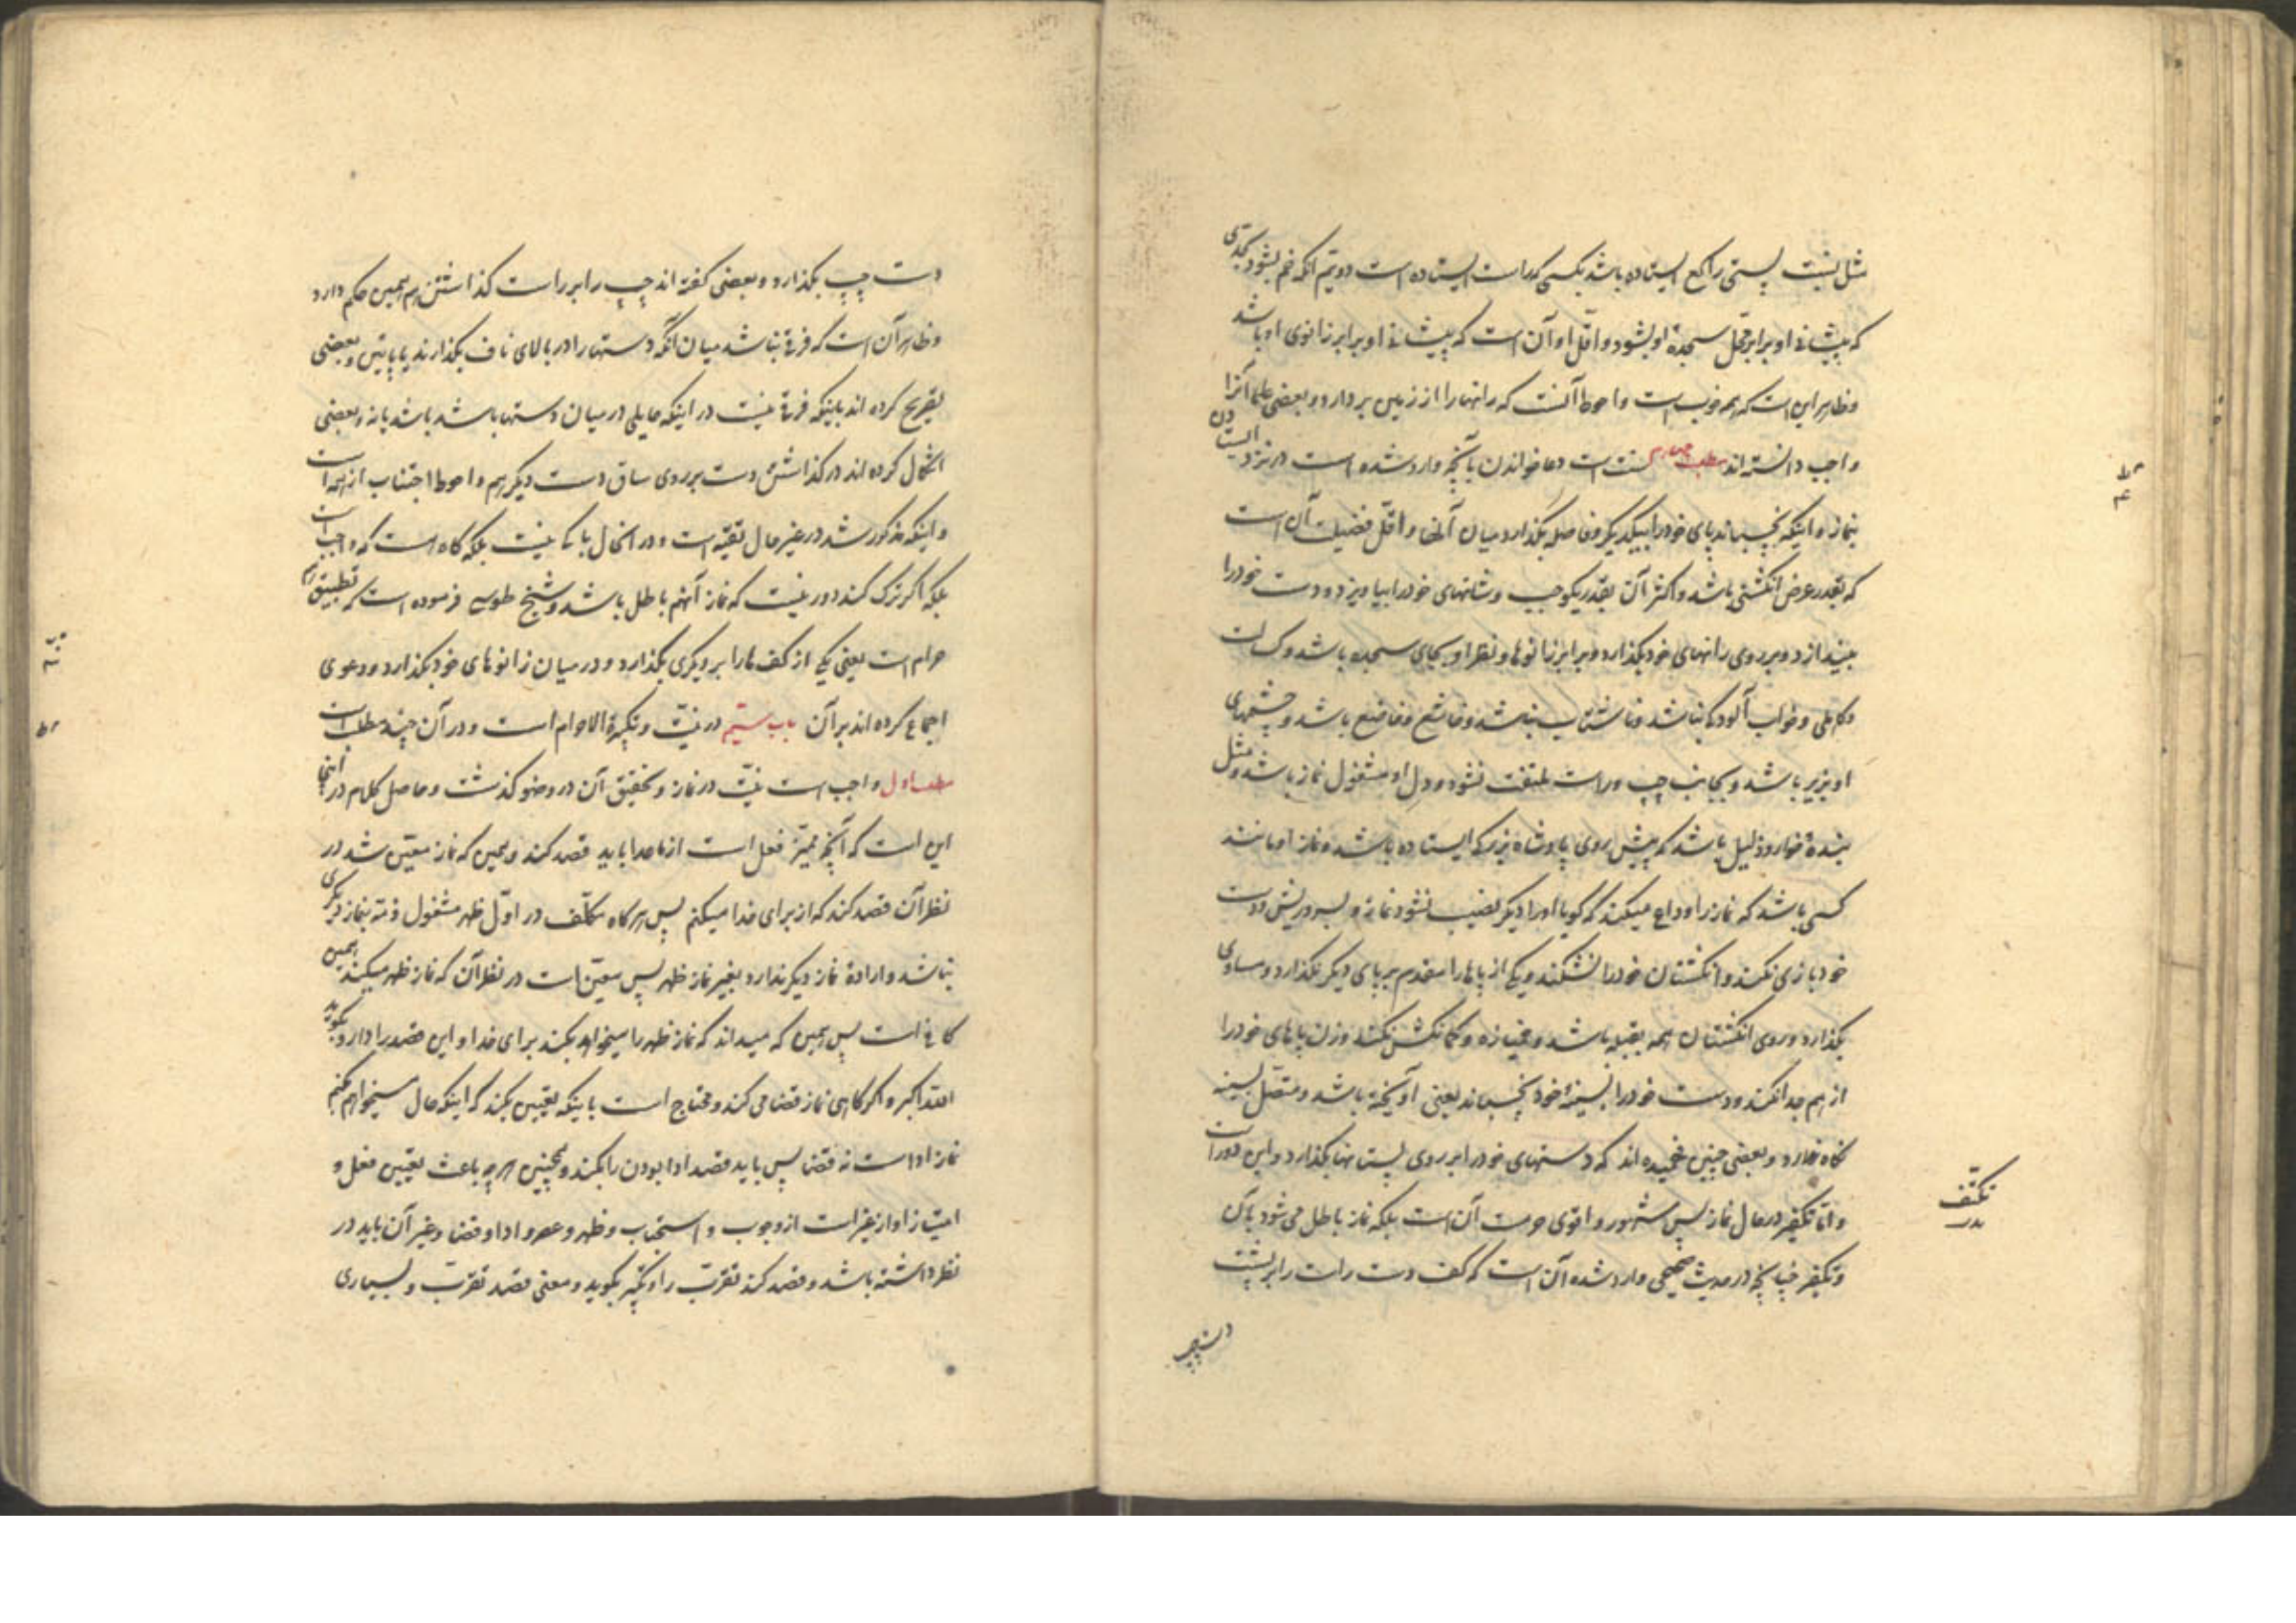 مثل نسبت پستی راکع ایستاده باشد بکسی که راست ایستاده است دویم آنکه خم بشود بقدری
که پیشانی او برابر محل سجدهٔ او بشود و اقل او آن است که پیشانی او برابر زانوی او باشد
و ظاهر این است که همه خوب است و احوط آنست که رانها را از زمین بردارد و بعضی علما آنرا
واجب دانسته‌اند مطلب چهارم سنت است دعا خواندن بآنچه وارد شده است در نزد ایستادن
بنماز و اینکه نچسباند پای خود را بیکدیگر و فاصله بگذارد میان آنها و اقل فضیلت آن است
که بقدر عرض انگشتی باشد و اکثر آن بقدر یکوجب و شانهای خود را بیاویزد و دست خود را
بیندازد و بر روی رانهای خود بگذارد و برابر زانوها و نظر او بجای سجده باشد و کسالت
و کاهلی و خواب آلودگی نباشد و با شتاب نباشد و خاشع و خاضع باشد و چشمهای
او بزیر باشد و بجانب چپ و راست ملتفت نشود و دل او مشغول نماز باشد و مثل
بندهٔ خوار و ذلیل باشد که پیش روی پادشاه بزرگ ایستاده باشد و نماز او مانند
کسی باشد که نماز را وداع میکند که گویا او را دیگر نصیب نشود نماز و بسر و ریش و دست
خود بازی نکند و انگشتان خود را نشکند و یکی از پاها را مقدم بر پای دیگر نگذارد و مساوی
بگذارد و روی انگشتان همه بقبله باشد و خمیازه و کمانکش نکند و زن پاهای خود را
از هم جدا نکند و دست خود را بسینهٔ خود بچسباند یعنی آویخته نباشد و متصل بسینه
نگاه دارد و بعضی چنین فهمیده‌اند که دستهای خود را بر روی پستانها بگذارد و این دور است
و اما تکفیر در حال نماز پس مشهور و اقوی حرمت آن است بلکه نماز باطل می شود بآن
و تکفیر چنانچه در حدیث صحیحی وارد شده آن است که کف دست راست را بر پشت
دست چپ
تکتف
دست چپ بگذارد و بعضی گفته‌اند چپ را بر راست گذاشتن هم همین حکم دارد
و ظاهر آن است که فرقی نباشد میان آنکه دستها را در بالای ناف بگذارند یا پایین و بعضی
تصریح کرده‌اند باینکه فرقی نیست در اینکه حایلی در میان دستها باشد باشد یا نه و بعضی
اشکال کرده‌اند در گذاشتن دست بر روی ساق دست دیگر هم و احوط اجتناب از همه است
و اینکه مذکور شد در غیر حال تقیه است و در آنحال باکی نیست بلکه گاه است که واجب است
بلکه اگر ترک کند دور نیست که نماز آنهم باطل باشد و شیخ طوسی فرموده است که تطبیق هم
حرام است یعنی یکی از کف ها را بر دیگری بگذارد و در میان زانوهای خود بگذارد و دعوی
اجماع کرده‌اند بر آن باب سیم در نیت و تکبیرة الاحرام است و در آن چند مطلب است
مطلب اول واجب است نیت در نماز و تحقیق آن در وضو گذشت و حاصل کلام در اینجا
این است که آنچه ممیز فعل است از ماعدا باید قصد کند و همین که نماز معین شد در
نظر آن قصد کند که از برای خدا میکنم پس هر گاه مکلف در اول ظهر مشغول ذمه بنماز دیگری
نباشد و ارادهٔ نماز دیگر ندارد بغیر نماز ظهر پس معین است در نظر آن که نماز ظهر میکند همین
کافی است پس همین که میداند که نماز ظهر را میخواهد بکند برای خدا و این قصد را دارد بگوید
الله اکبر و اگر گاهی نماز قضا می کند و محتاج است باینکه تعیین بکند که اینکه حال میخواهم بکنم
نماز ادا است نه قضا پس باید قصد ادا بودن را بکند و همچنین هر چه باعث تعیین فعل و
امتیاز او از غیر است از وجوب و استحباب و ظهر و عصر و ادا و قضا و غیر آن باید در
نظر داشته باشد و قصد کند تقرب را و تکبیر بگوید و معنی قصد تقرب و بسیاری